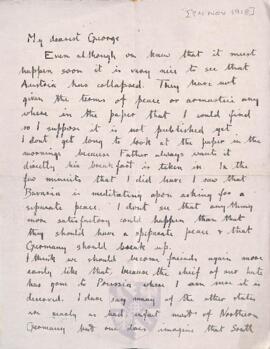 [5TH NOV 1918]
My dearest George
Even although one knew that it must
happen soon it is very nice to see that
Austria has collapsed. They have not
given the terms of peace or armastice any
where in the paper that I could find
so I suppose it is not published yet
I dont get long to look at the paper in the
mornings because Father always wants it
directly his breakfast is taken in. In the
few minuits that I did have I saw that
Bavaria is meditating upon asking for a
separate peace. I dont see that any thing
more satisfactory could happen than that
they should have a seperate peace & that
Germany should break up.
I think we should become friends again more
easily like that, because the chief of our hate
has gone to Prussia where I am sure it is
deserved. I dare say many of the other states
are nearly as bad infact most of Northern
Germany but one does imagine that South